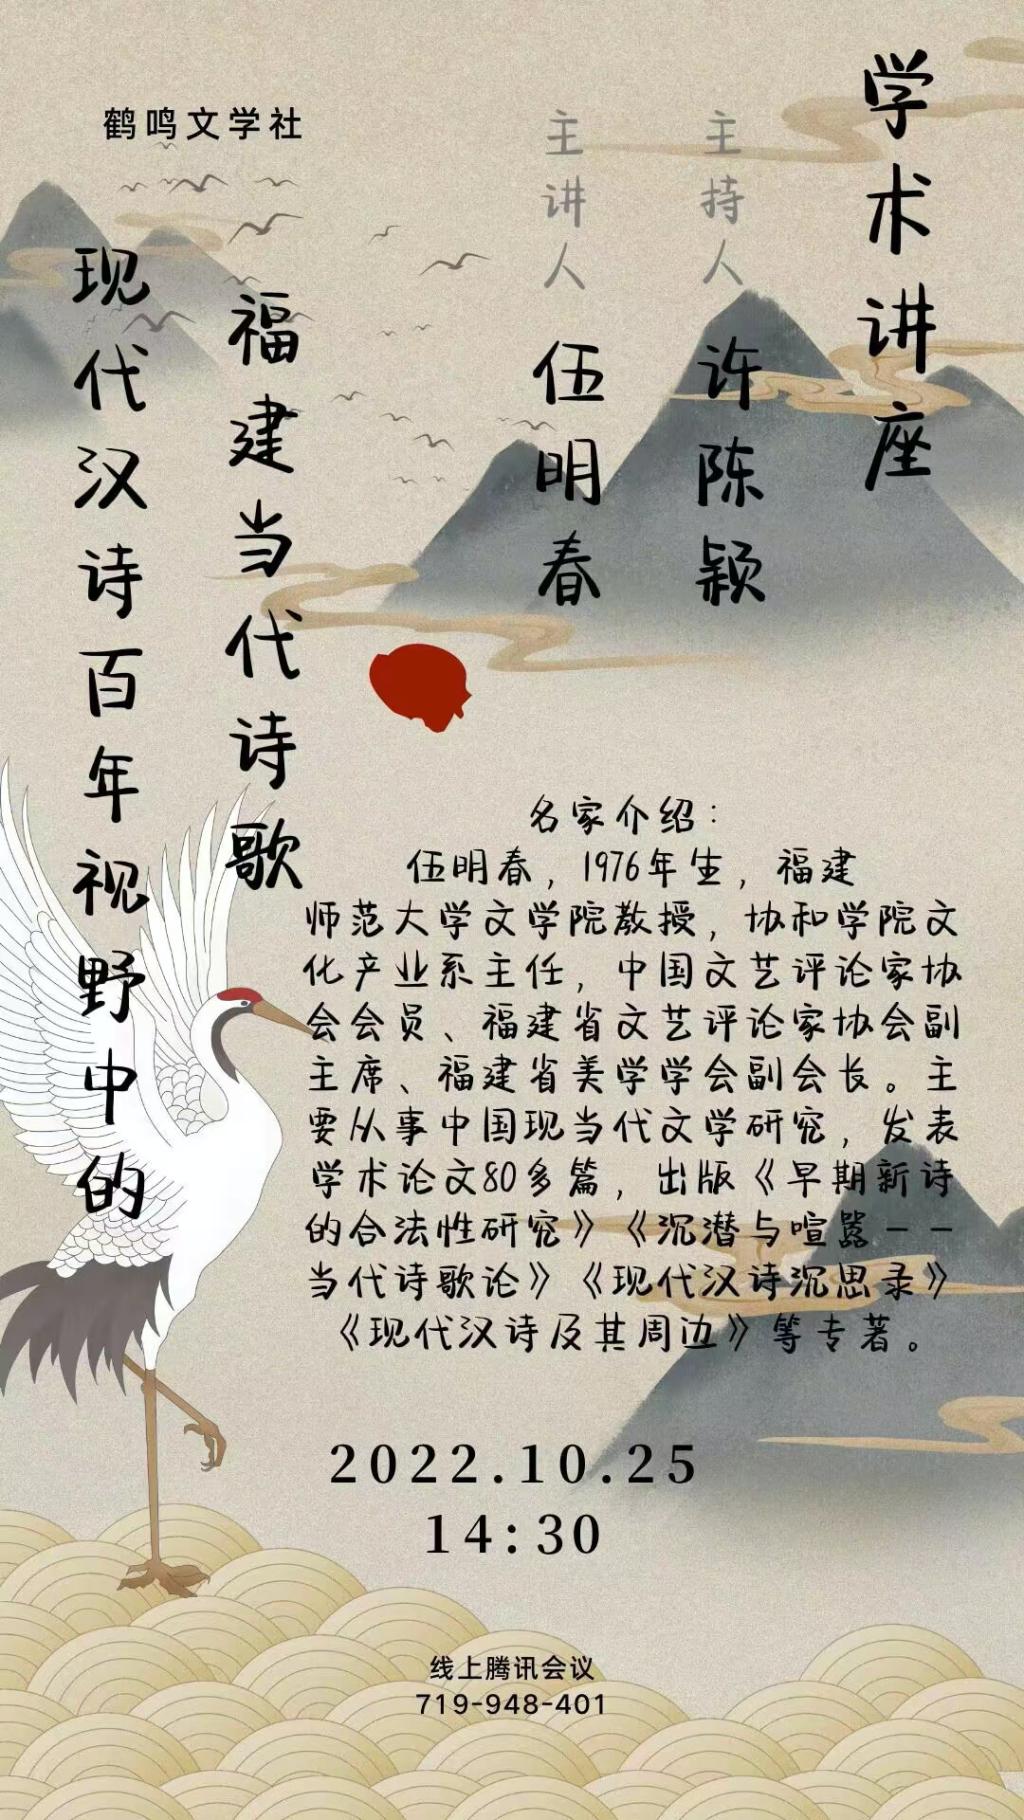 鹤鸣文学社
学术讲座
主持人 许陈颖
主讲人 伍明春
现代汉诗百年视野中的
福建当代诗歌
名家介绍：
伍明春，1976年生，福建
师范大学文学院教授，协和学院文
化产业系主任，中国文艺评论家协
会会员、福建省文艺评论家协会副
主席、福建省美学学会副会长。主
要从事中国现当代文学研究，发表
学术论文80多篇，出版《早期新诗
的合法性研究》《沉潜与喧嚣——
当代诗歌论》《现代汉诗沉思录》
《现代汉诗及其周边》等专著。
2022.10.25
14:30
线上腾讯会议
719-948-401